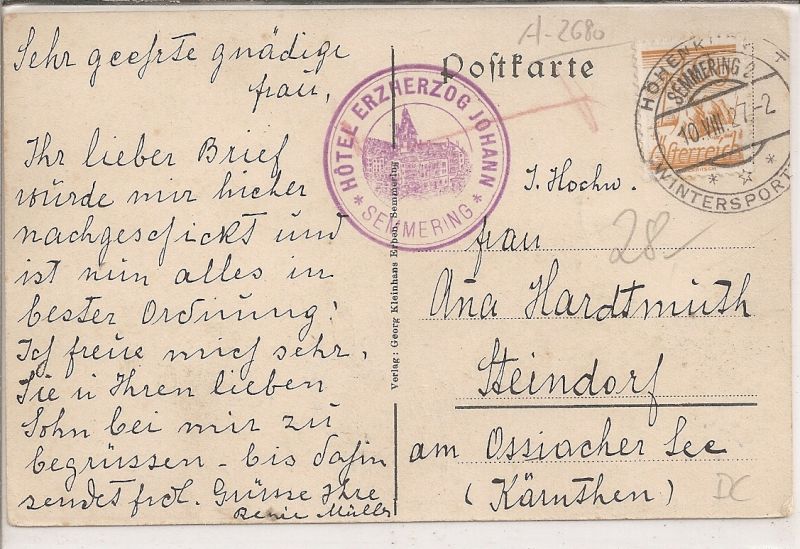 Sehr geehrte gnädige
Frau,
Ihr lieber Brief
wurde mir hieher
nachgeschickt und
ist nun alles in
bester Ordnung!
Ich freue mich sehr,
Sie u Ihren lieben
Sohn bei mir zu
begrüssen - bis dahin
sendet frdl. Grüsse Ihre
Müller
Verlag: Georg Kleinhans Erben, Semmering
HÔTEL ERZHERZOG JOHANN
* SEMMERING *
A-2680
Postkarte
SEMMERING 2
10.VIII.27-2
Österreich
WINTERSPORT
I. Hochw.
28-
Frau
Ana Hardtmuth
Steindorf
am Ossiacher See
(Kärnthen)
DC